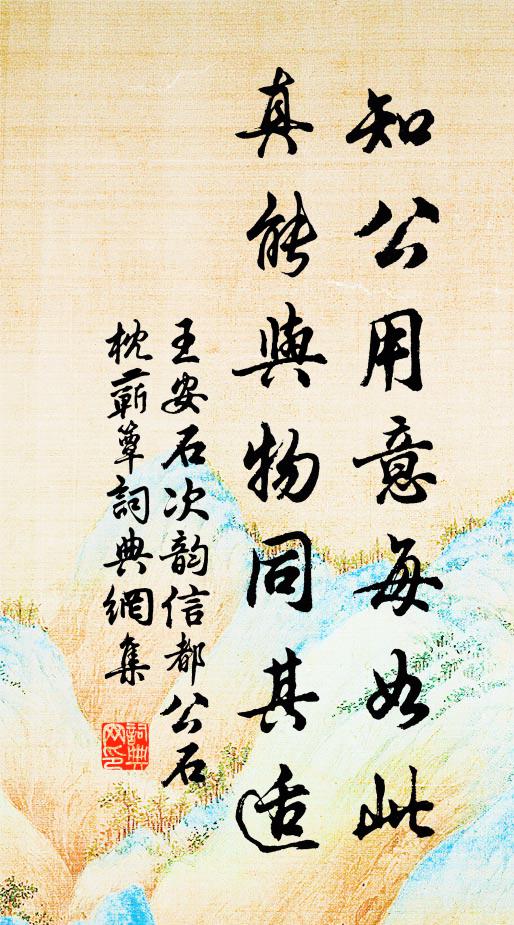 知公用意每如此
真能與物同其适
王安石次韵信都公石
枕蘄簟詞典網集
詞典
网印